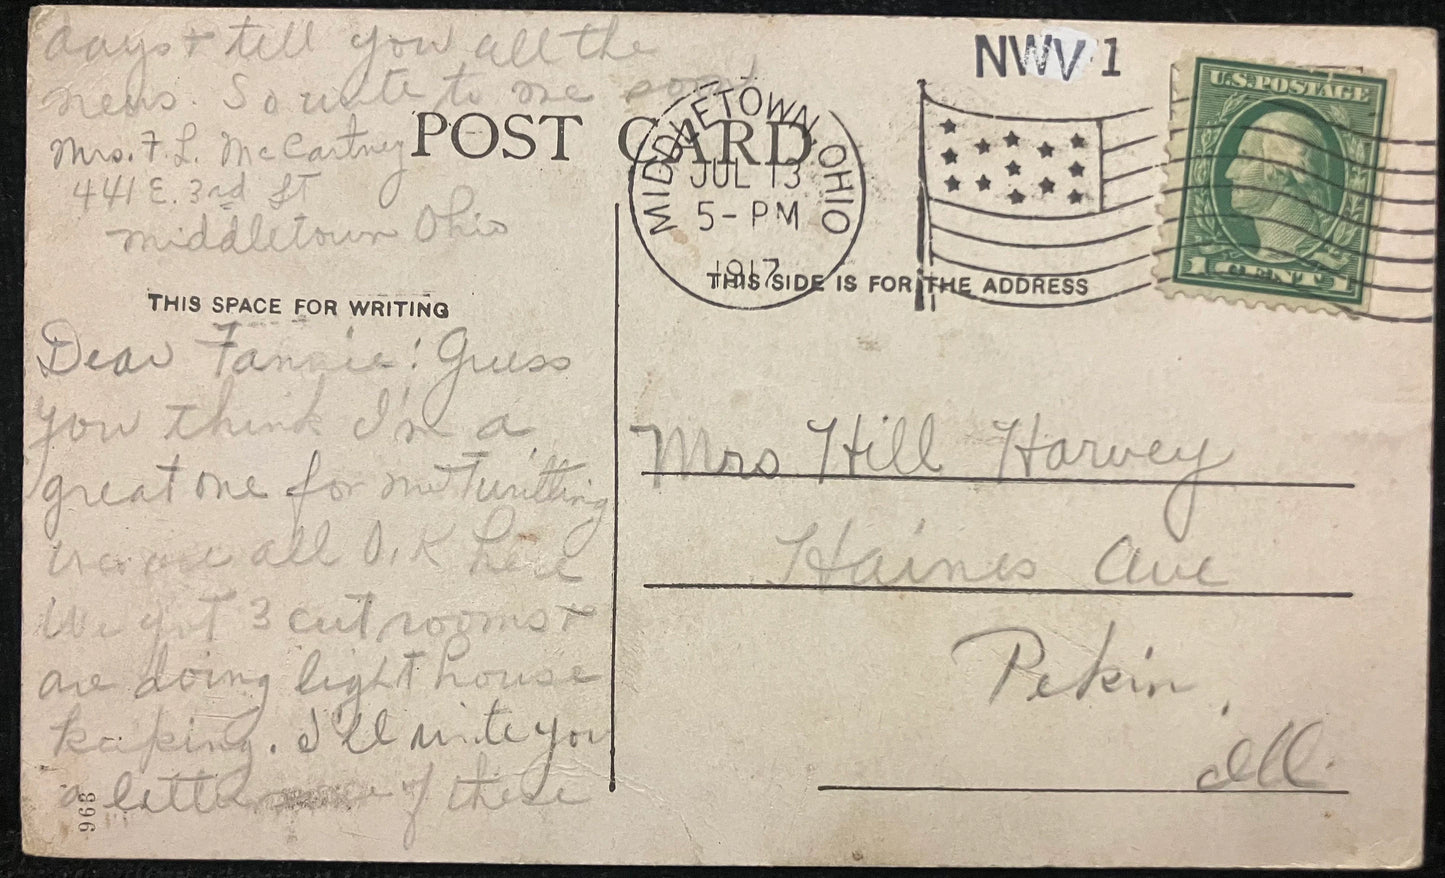 days + tell you all the
news. So write to me soon
Mrs. F. L. McCartney
441 E. 3rd St
Middletown Ohio
POST CARD
THIS SPACE FOR WRITING
Dear Fannie! Guess
you think I'm a
great one for not writting
we are all O.K here
We got 3 cut rooms +
are doing light house
keeping. I'll write you
a letter one of these
968
NWV 1
MIDDLETOWN, OHIO
JUL 13
5-PM
1917
U.S. POSTAGE
1 CENT 1
THIS SIDE IS FOR THE ADDRESS
Mrs Hill Harvey
Haines Ave
Pekin,
Ill.